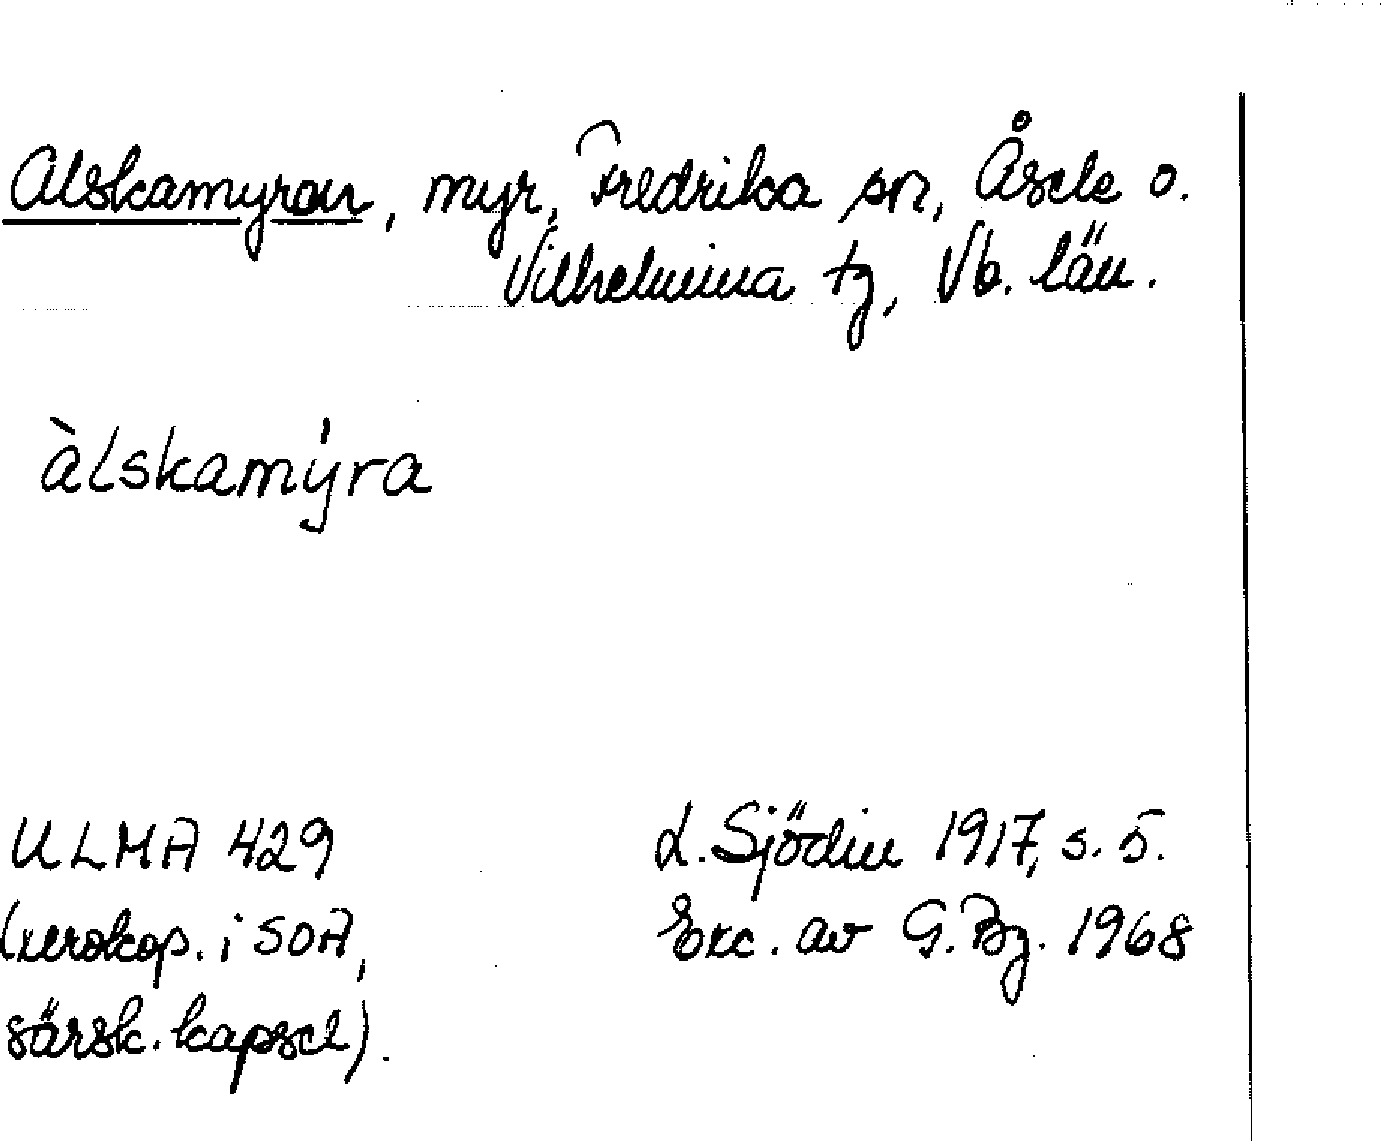 Alskamyran, myr, Fredrika sn, Åsele o.
Vilhelmina tg, Vb. län.
àlskamýra
ULMA 429
L. Sjödin 1917, s. 5.
(xerokop. i SOA,
Exc. av G. Bg. 1968
särsk. kapsel).